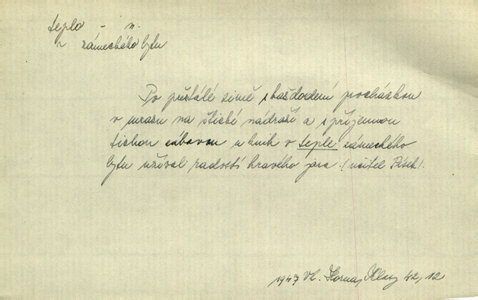 teplo - n.
z zámeckého bytu
Po přestálé zimě s každodenní procházkou
v mrazu na štické nádraží a s příjemnou
tichou zábavou u knih v teple zámeckého
bytu užíval radostí hravého jara (učitel Pesek).
1947 Vl. Horna, 42, 12